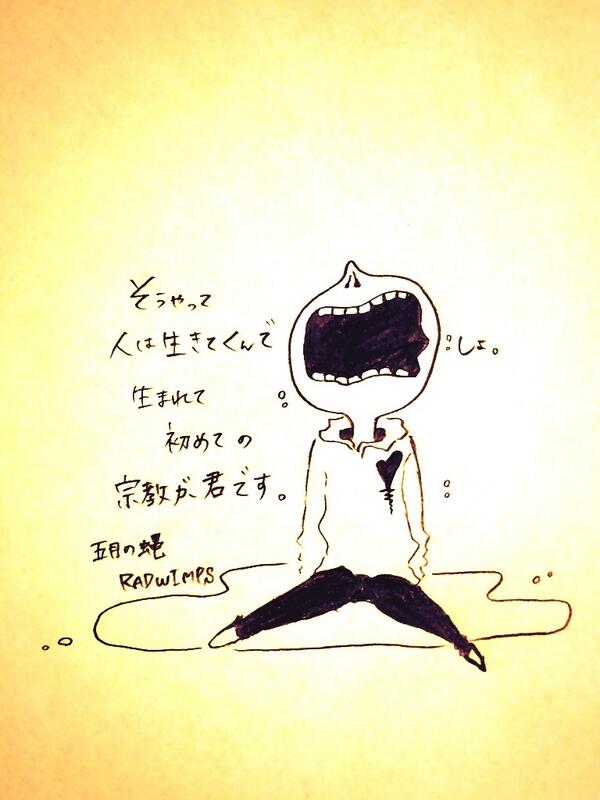 そうやって
人は生きてくんで しょ。
生まれて
初めての
宗教が君です。
五月の蝿
RADWIMPS